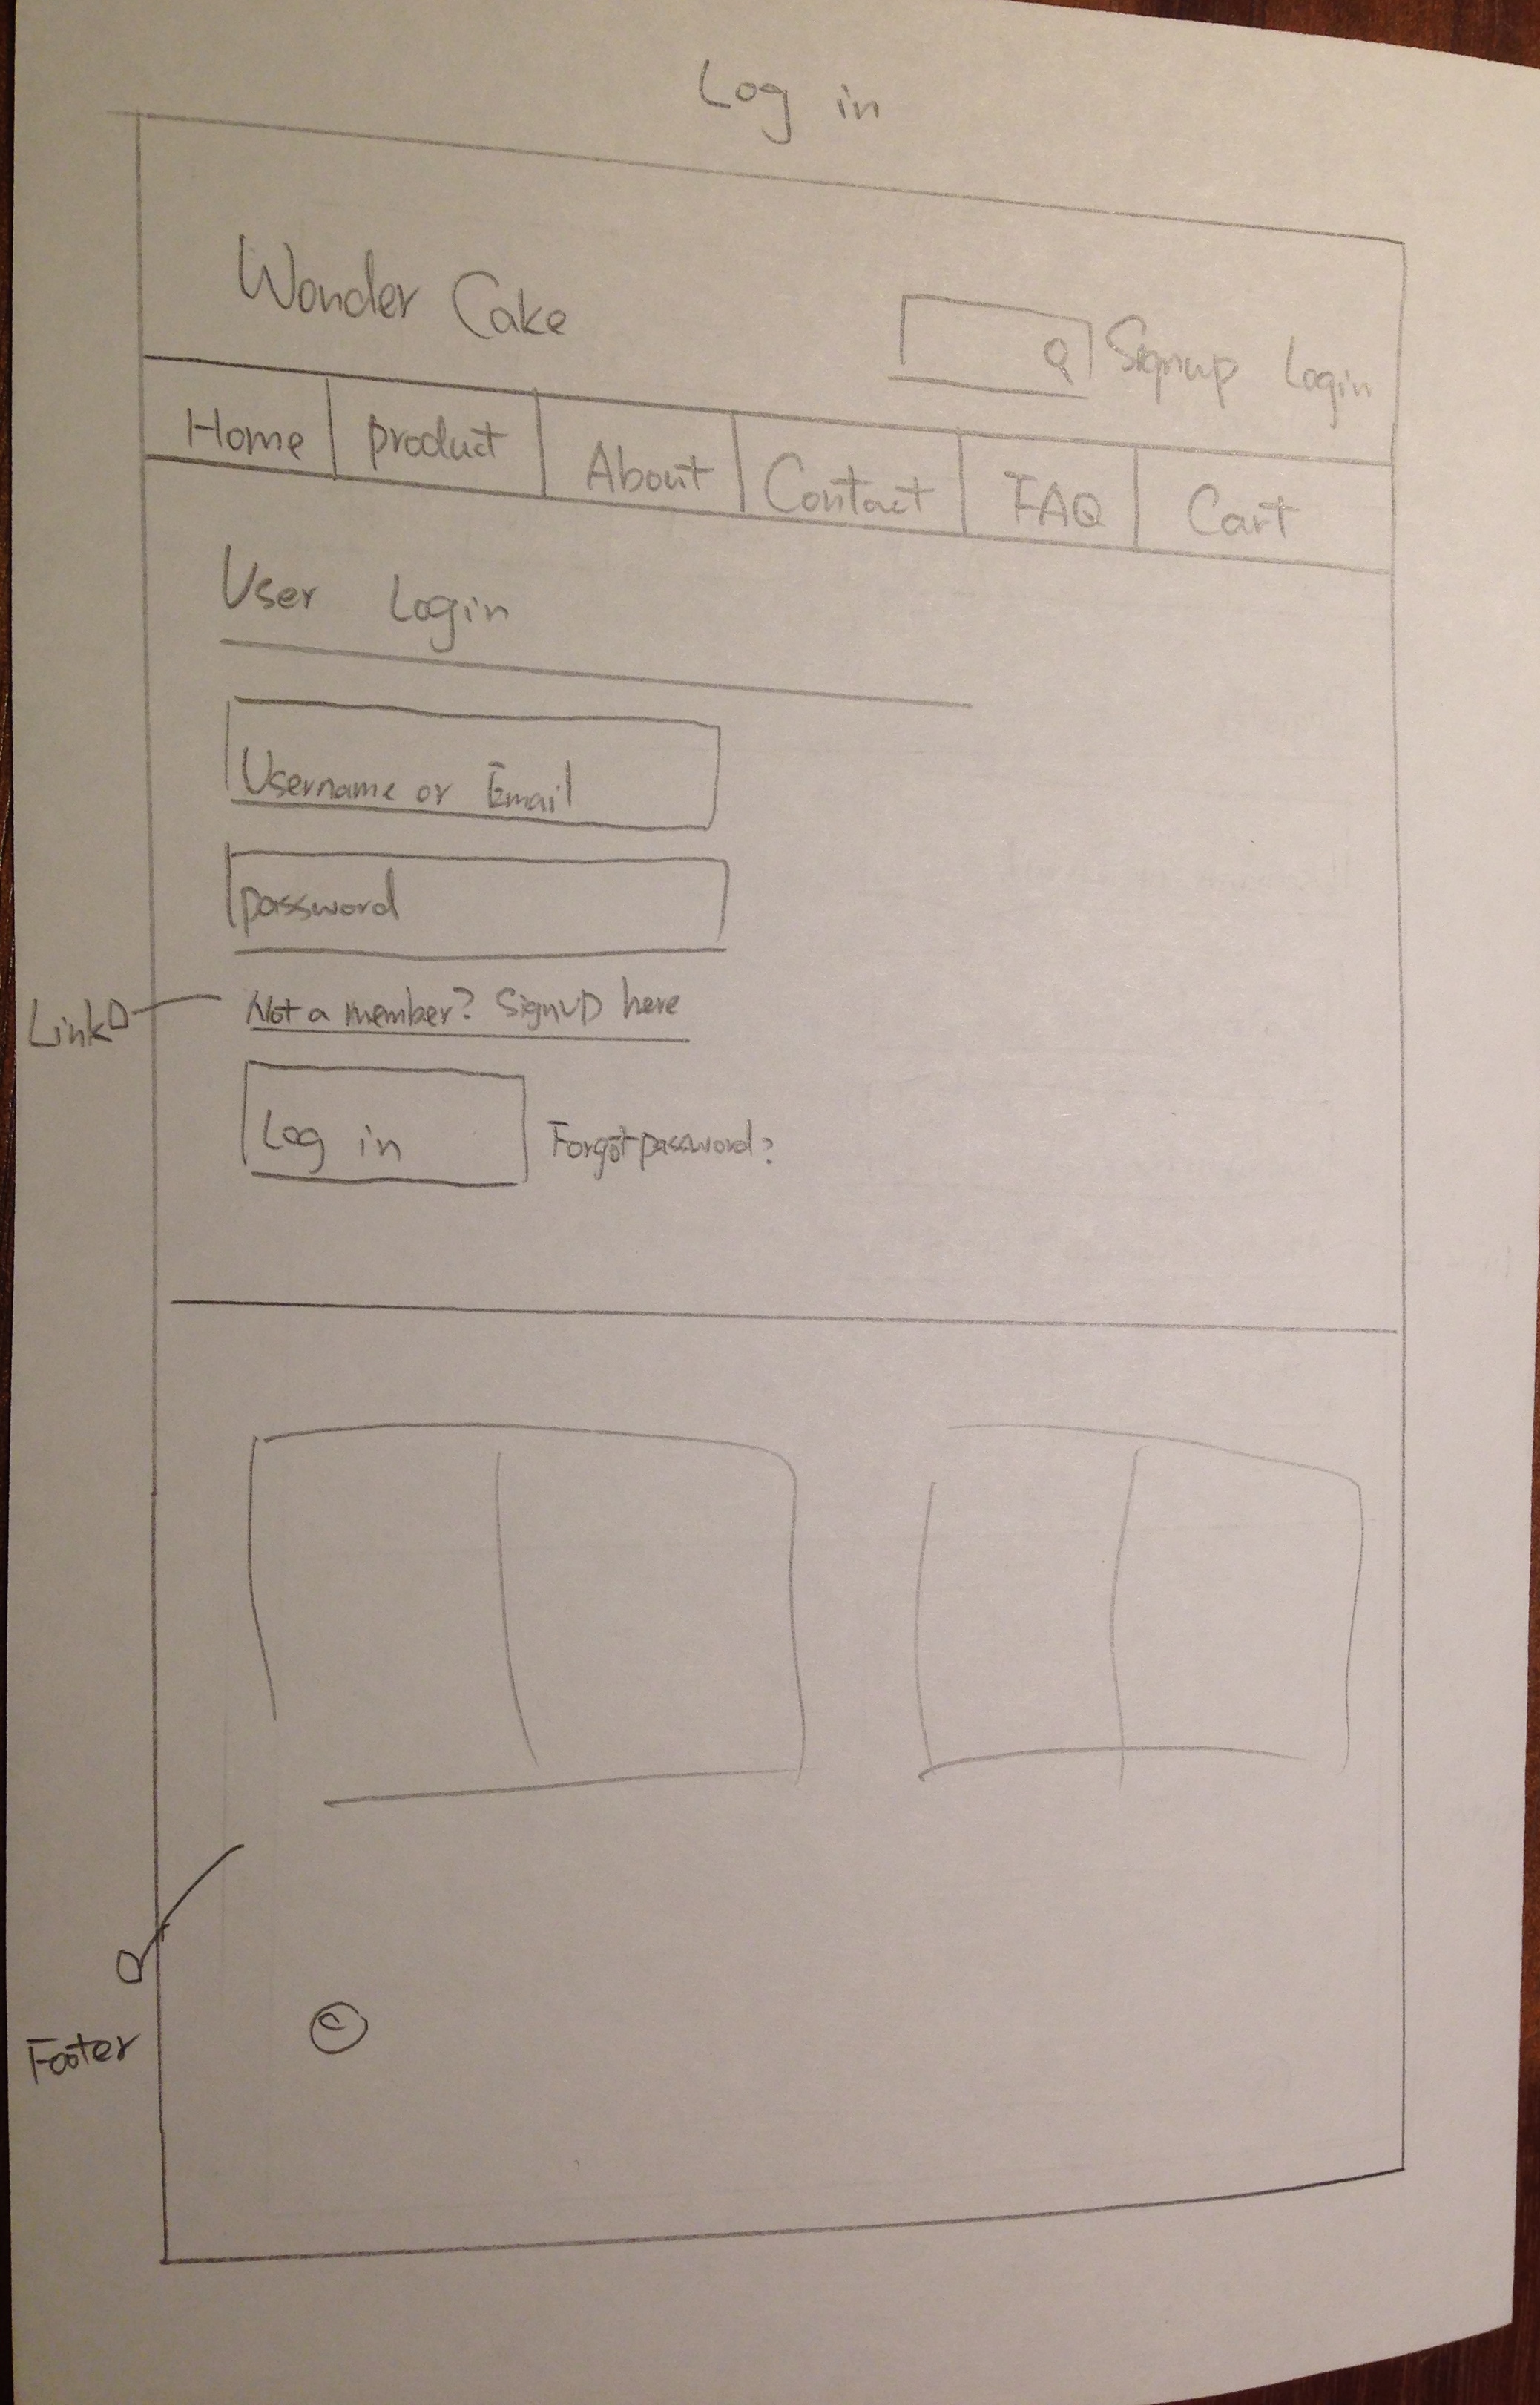 Log in
Wonder Cake
Signup Login
Home product About Contact FAQ Cart
User Login
Username or Email
password
Link Not a member? Signup here
Log in Forgot password?
Footer
©